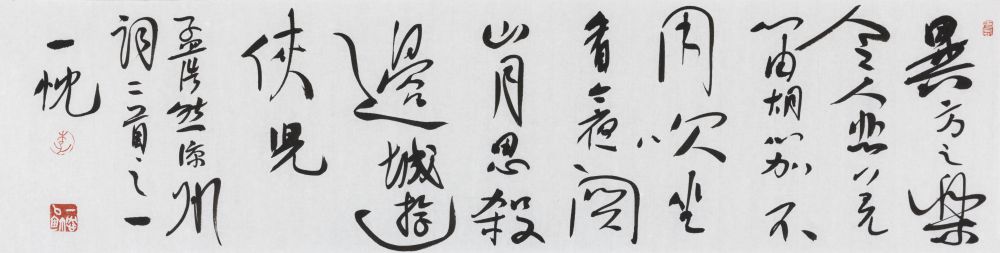 異方之樂
令人悲羌
笛胡笳不
用吹坐
看今夜関
山月思殺
邊城遊
俠児
孟浩然凉州
詞二首之一
一忱
李